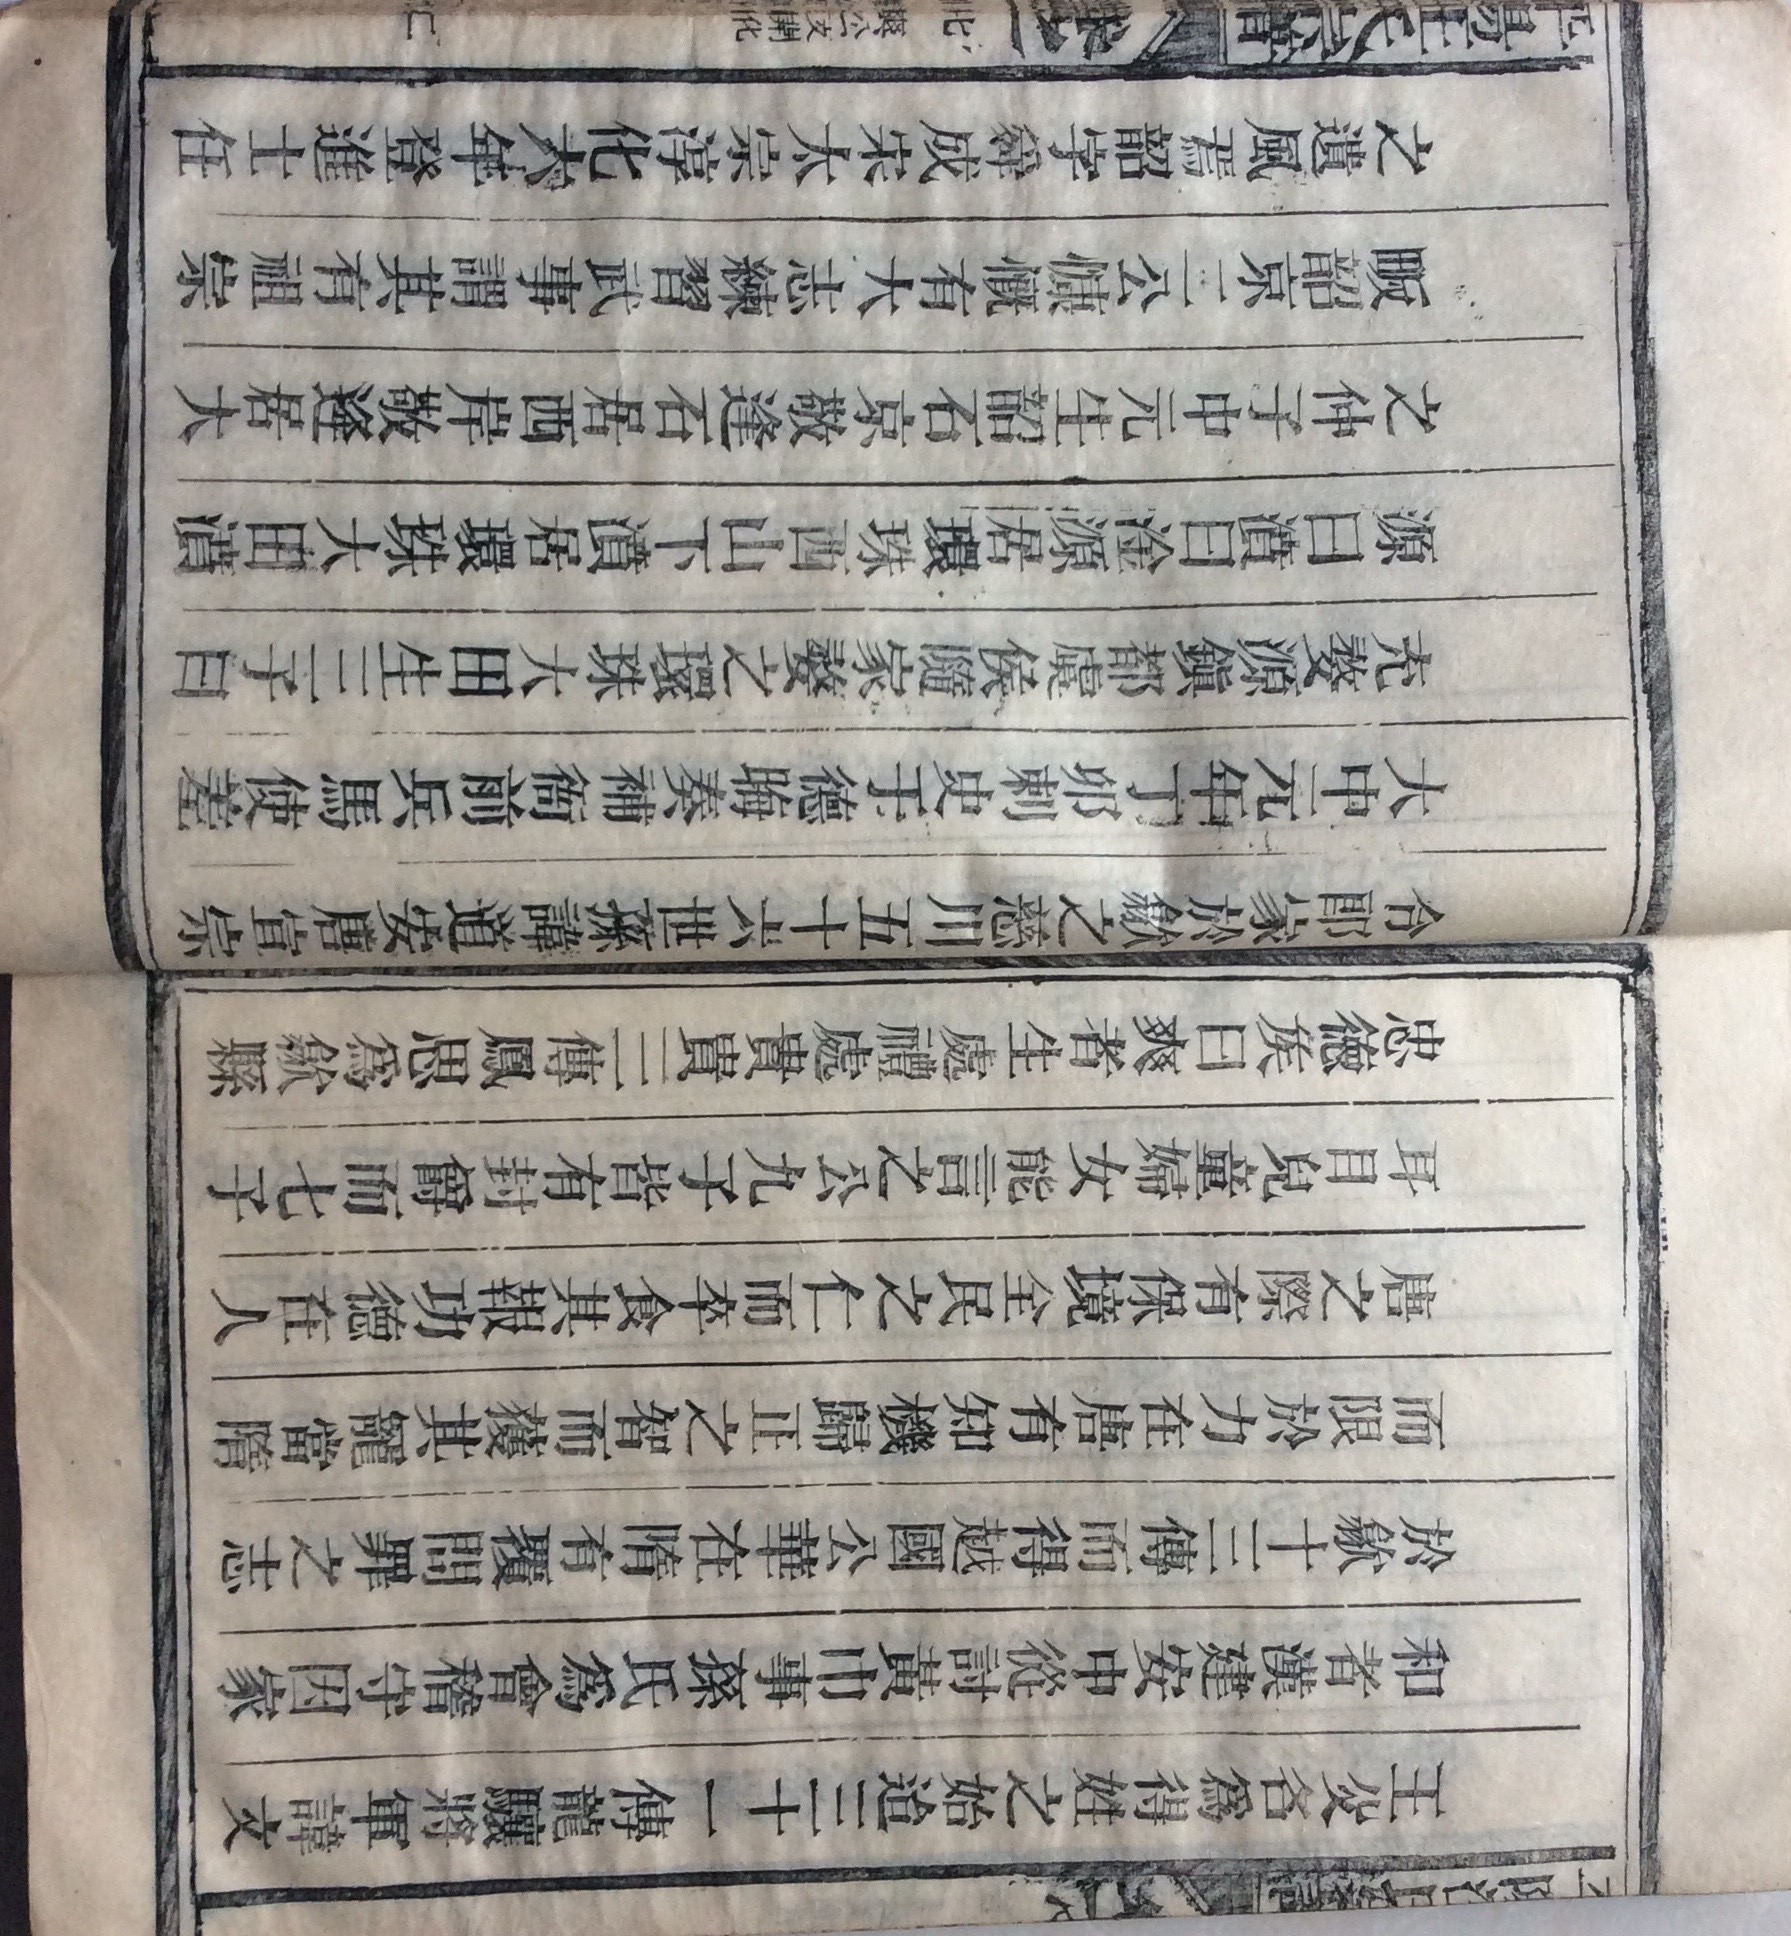 王父名為得姓之始迨三十一傳龍驤將軍諱文
和者漢建安中從討黃巾事孫氏為會稽守因家
於歙十三傳而得越國公華在隋有覆問罪之志
而限於力在唐有知機歸正之智而獲其寵當隋
唐之際有保境全民之仁而卒食其報功德在人
耳目兒童婦女能言之公九子皆有封爵而七子
忠德矦曰爽者生處禮處貴貴三傳鳳思為歙縣
令即家於歙之慈川五十六世孫諱道安唐宣宗
大中元年丁卯刺史于德晦奏補衙前兵馬使差
充婺源鎮都虞侯隨家婺之環珠大田生二子曰
源曰濆曰淦源居環珠西山下濆居環珠大田濆
之仲子中元生韶石京敬達石居西岸敬達居大
畈韶京二公慷慨有大志練習武事謂其有祖宗
之遺風焉韶字舜成宋太宗淳化六年登進士任
平陽汪氏宗譜